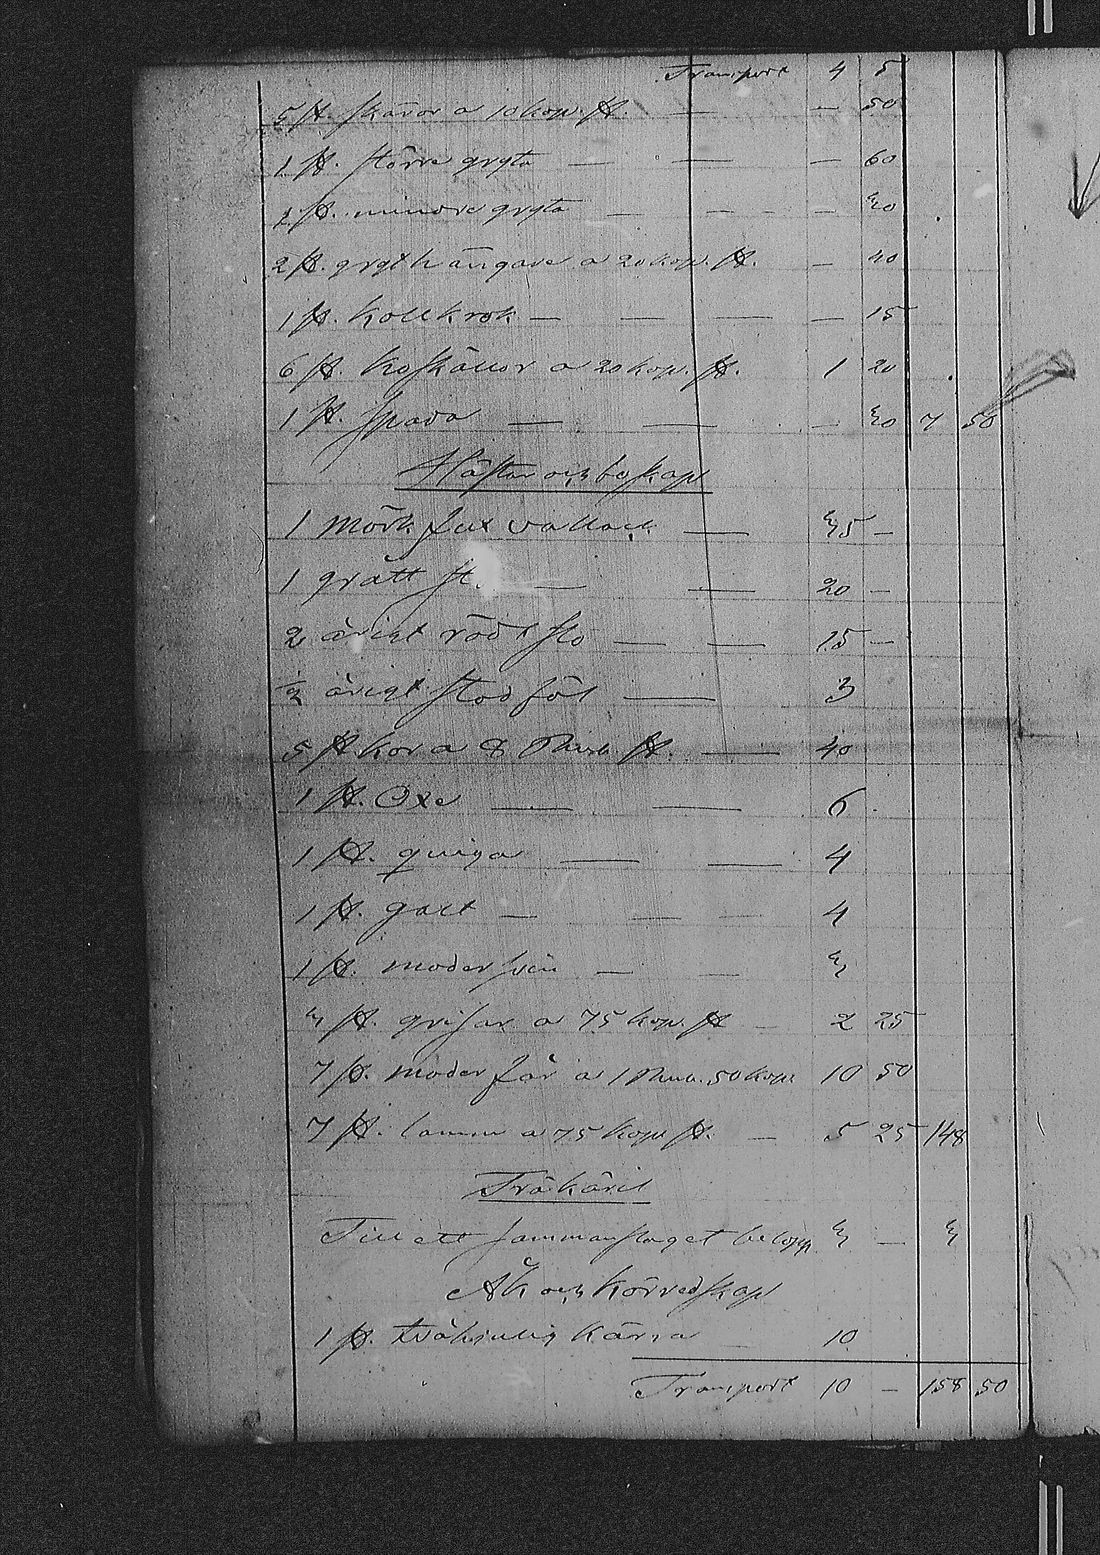 Transport 4 5
5 st. skäror a 10 kop. st. — — 50
1 st. större gryta — — — 60
1 st. mindre gryta — — — — 30
2 st. grythängare a 20 kop. st. — 40
1 st. kollkrok — — — — 15
6 st. koskällor a 20 kop. st. 1 20
1 st. spada — — — 30 7 50
Hästar och boskap
1 mörk fux vallack — 35 —
1 grått st. — — 20 —
2 årigt rödt sto — — 15 —
½ årigt stod föl — 3
5 st kor a 8 Rub. st. — 40
1 st. Oxe — — 6
1 st. quiga — — 4
1 st. galt — — — 4
1 st. moder svin — — 3
3 st. grisar a 75 kop. st — 2 25
7 st. moder får a 1 Rub. 50 kop. 10 50
7 st. lamm a 75 kop. st. — 5 25 148
Träkäril
Till ett sammanslaget belopp 3 — 3
Åk och körredskap
1 st. tvåhjulig kärra 10
Transport 10 — 158 50